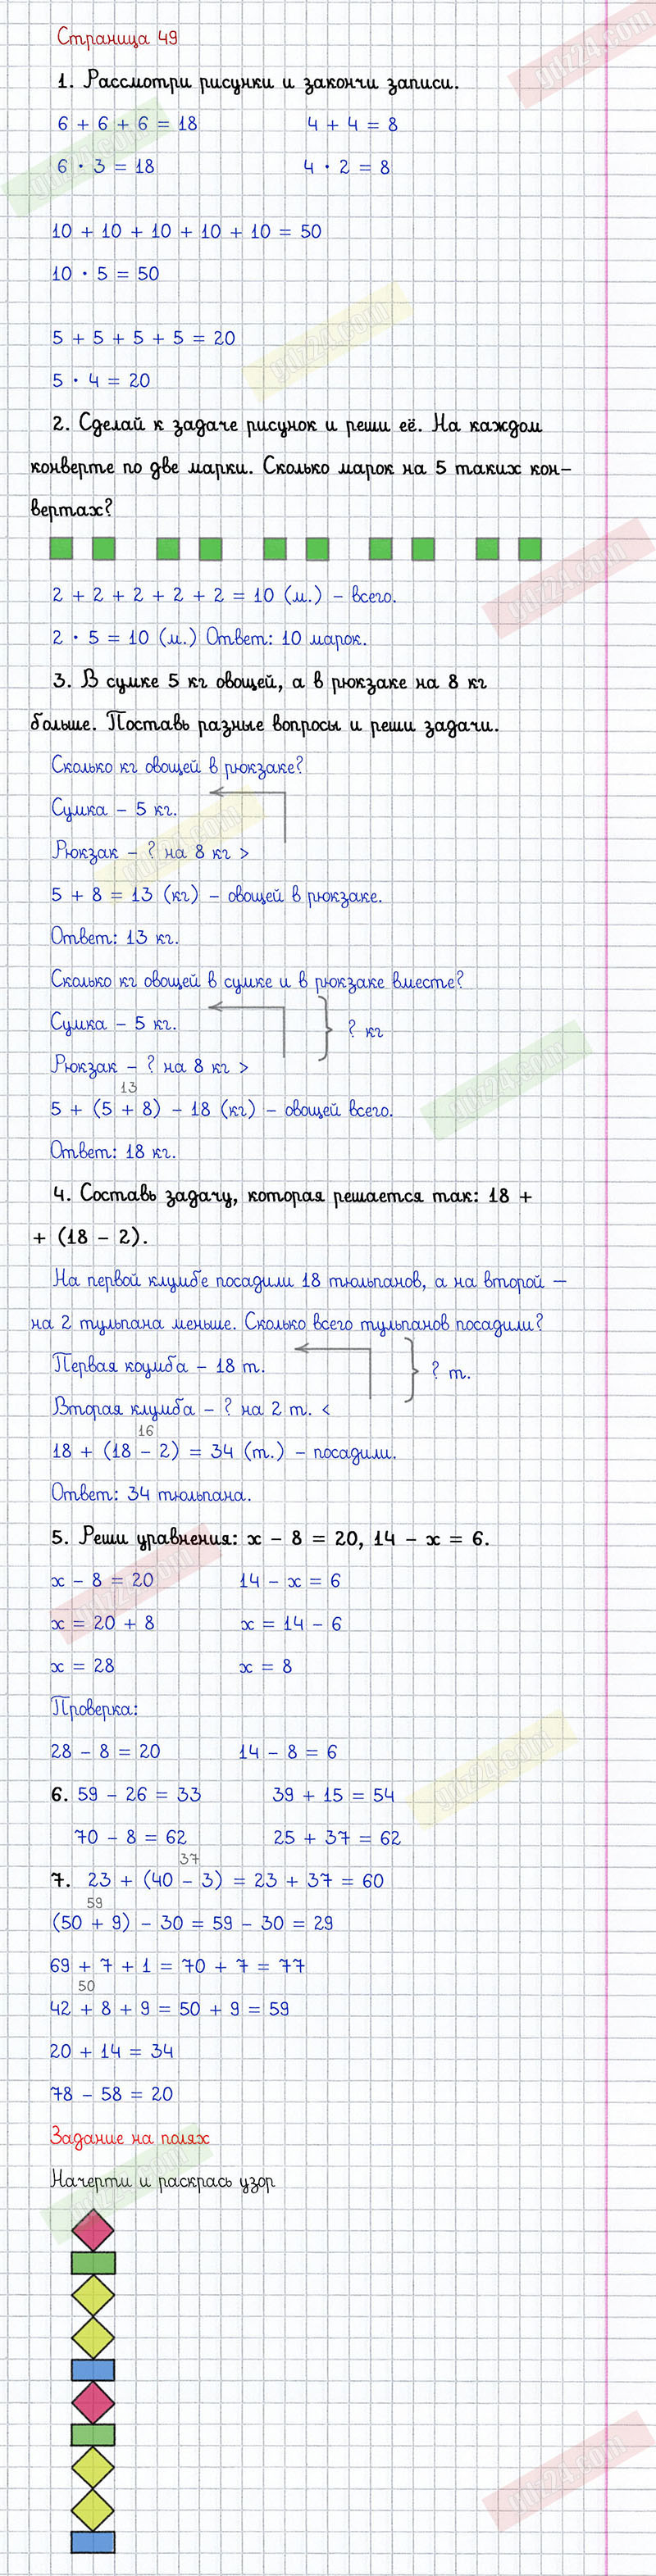 Страница 49
1. Рассмотри рисунки и закончи записи.
6 + 6 + 6 = 18 4 + 4 = 8
6 · 3 = 18 4 · 2 = 8
10 + 10 + 10 + 10 + 10 = 50
10 · 5 = 50
5 + 5 + 5 + 5 = 20
5 · 4 = 20
2. Сделай к задаче рисунок и реши её. На каждом
конверте по две марки. Сколько марок на 5 таких кон-
вертах?
2 + 2 + 2 + 2 + 2 = 10 (м.) – всего.
2 · 5 = 10 (м.) Ответ: 10 марок.
3. В сумке 5 кг овощей, а в рюкзаке на 8 кг
больше. Поставь разные вопросы и реши задачи.
Сколько кг овощей в рюкзаке?
Сумка – 5 кг.
Рюкзак – ? на 8 кг >
5 + 8 = 13 (кг) – овощей в рюкзаке.
Ответ: 13 кг.
Сколько кг овощей в сумке и в рюкзаке вместе?
Сумка – 5 кг.
? кг
Рюкзак – ? на 8 кг >
13
5 + (5 + 8) – 18 (кг) – овощей всего.
Ответ: 18 кг.
4. Составь задачу, которая решается так: 18 +
+ (18 – 2).
На первой клумбе посадили 18 тюльпанов, а на второй –
на 2 тульпана меньше. Сколько всего тульпанов посадили?
Первая коумба – 18 т.
? т.
Вторая клумба – ? на 2 т. <
16
18 + (18 – 2) = 34 (т.) – посадили.
Ответ: 34 тюльпана.
5. Реши уравнения: х – 8 = 20, 14 – х = 6.
х – 8 = 20 14 – х = 6
х = 20 + 8 х = 14 – 6
х = 28 х = 8
Проверка:
28 – 8 = 20 14 – 8 = 6
6. 59 – 26 = 33 39 + 15 = 54
70 – 8 = 62 25 + 37 = 62
37
7. 23 + (40 – 3) = 23 + 37 = 60
59
(50 + 9) – 30 = 59 – 30 = 29
69 + 7 + 1 = 70 + 7 = 77
50
42 + 8 + 9 = 50 + 9 = 59
20 + 14 = 34
78 – 58 = 20
Задание на полях
Начерти и раскрась узор
gdz24.com
gdz24.com
gdz24.com
gdz24.com
gdz24.com
gdz24.com
gdz24.com
gdz24.com
gdz24.com
gdz24.com